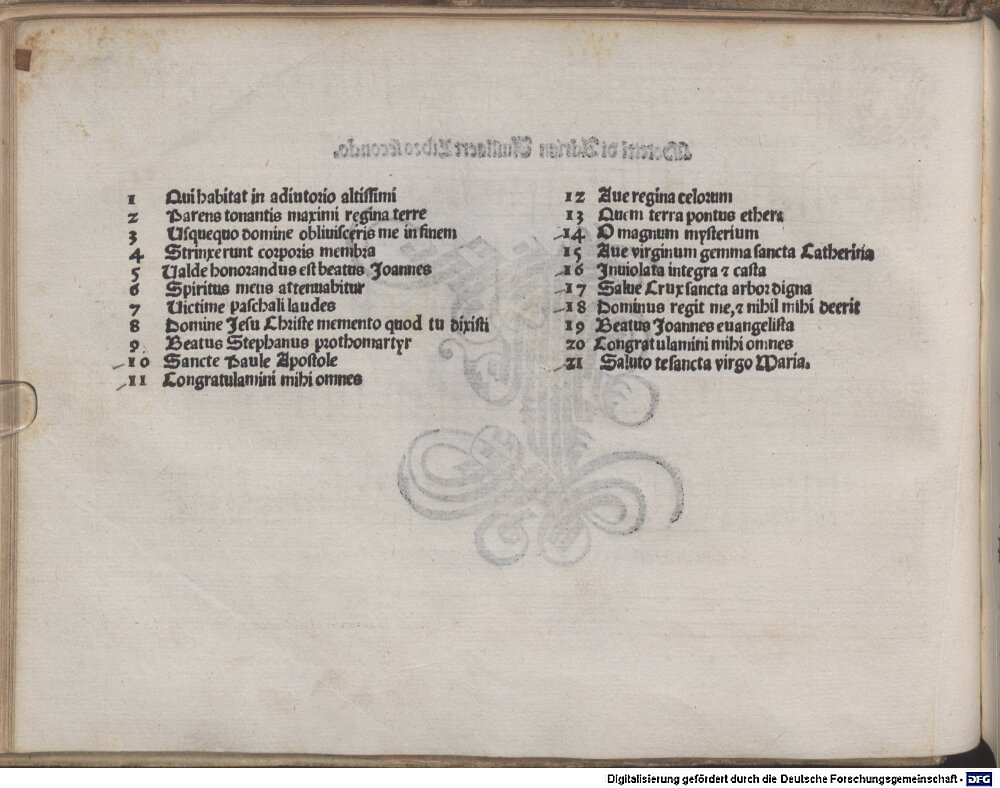 Moteti di Adrian Uuillaert Libro secondo.
1 Qui habitat in adiutorio altissimi
2 Parens tonantis maximi regina terre
3 Usquequo domine obliuisceris me in finem
4 Strinxerunt corporis membra
5 Ualde honorandus est beatus Joannes
6 Spiritus meus attenuabitur
7 Uictime paschali laudes
8 Domine Jesu Christe memento quod tu dixisti
9 Beatus Stephanus prothomartyr
10 Sancte Paule Apostole
11 Congratulamini mihi omnes
12 Aue regina celorum
13 Quem terra pontus ethera
14 O magnum mysterium
15 Aue virginum gemma sancta Catherina
16 Inuiolata integra ⁊ casta
17 Salue Crux sancta arbor digna
18 Dominus regit me, ⁊ nihil mihi deerit
19 Beatus Joannes euangelista
20 Congratulamini mihi omnes
21 Saluto te sancta virgo Maria.
Digitalisierung gefördert durch die Deutsche Forschungsgemeinschaft - DFG